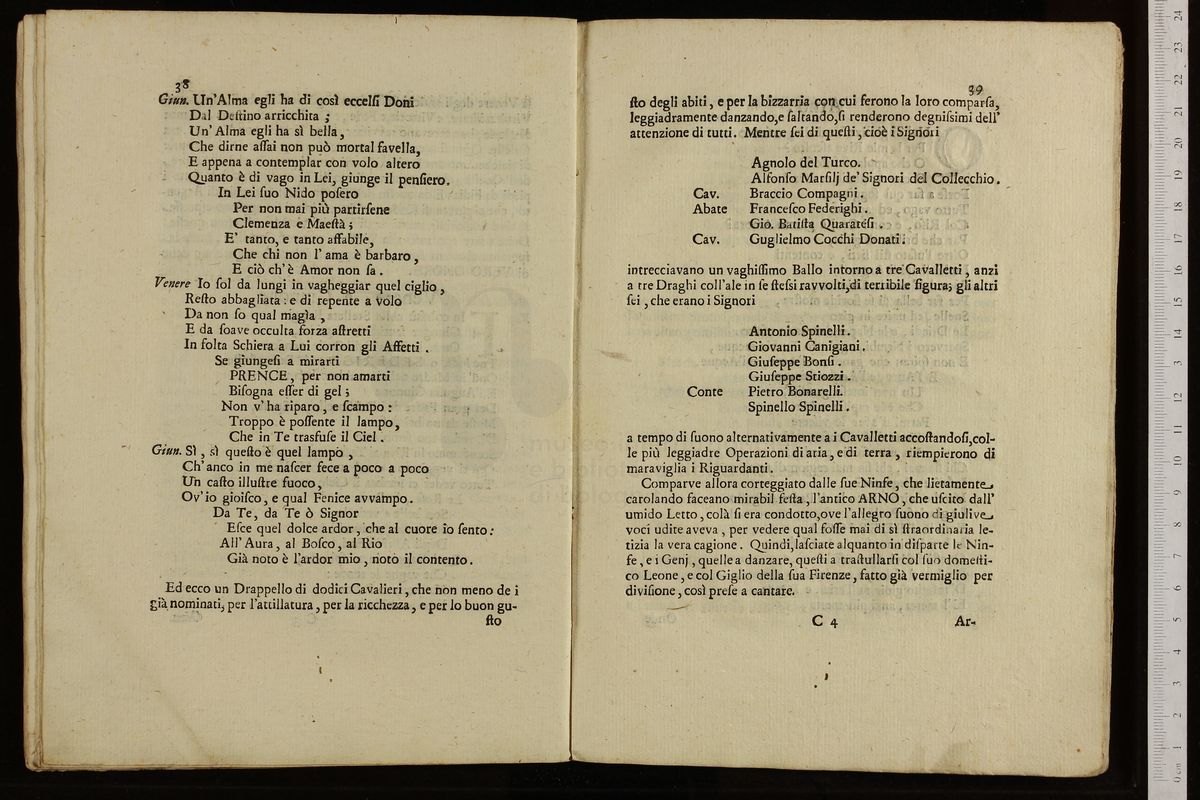 38
Giun. Un'Alma egli ha di così eccelſi Doni
Dal Deſtino arricchita ;
Un' Alma egli ha sì bella,
Che dirne aſſai non può mortal favella,
E appena a contemplar con volo altero
Quanto è di vago in Lei, giunge il penſiero.
In Lei ſuo Nido poſero
Per non mai più partirſene
Clemenza e Maeſtà ;
E' tanto, e tanto affabile,
Che chi non l' ama è barbaro,
E ciò ch'è Amor non ſa.
Venere Io ſol da lungi in vagheggiar quel ciglio,
Reſto abbagliata : e di repente a volo
Da non ſo qual magìa,
E da ſoave occulta forza aſtretti
In folta Schiera a Lui corron gli Affetti.
Se giungeſi a mirarti
PRENCE, per non amarti
Biſogna eſſer di gel ;
Non v' ha riparo, e ſcampo :
Troppo è poſſente il lampo,
Che in Te trasfuſe il Ciel.
Giun. Sì, sì queſto è quel lampo,
Ch' anco in me naſcer fece a poco a poco
Un caſto illuſtre fuoco,
Ov'io gioiſco, e qual Fenice avvampo.
Da Te, da Te ò Signor
Eſce quel dolce ardor, che al cuore io ſento :
All' Aura, al Boſco, al Rio
Già noto è l'ardor mio, noto il contento.
Ed ecco un Drappello di dodici Cavalieri, che non meno de i
già nominati, per l'attillatura, per la ricchezza, e per lo buon gu-
ſto
39
ſto degli abiti, e per la bizzarria con cui ferono la loro comparſa,
leggiadramente danzando, e ſaltando, ſi renderono degniſsimi dell'
attenzione di tutti. Mentre ſei di queſti, cioè i Signori
Agnolo del Turco.
Alfonſo Marſilj de' Signori del Collecchio.
Cav. Braccio Compagni.
Abate Franceſco Federighi.
Gio. Batiſta Quarateſi.
Cav. Guglielmo Cocchi Donati.
intrecciavano un vaghiſſimo Ballo intorno a tre Cavalletti, anzi
a tre Draghi coll'ale in ſe ſteſsi ravvolti, di terribile figura; gli altri
ſei, che erano i Signori
Antonio Spinelli.
Giovanni Canigiani.
Giuſeppe Bonſi.
Giuſeppe Stiozzi.
Conte Pietro Bonarelli.
Spinello Spinelli.
a tempo di ſuono alternativamente a i Cavalletti accoſtandoſi, col-
le più leggiadre Operazioni di aria, e di terra, riempierono di
maraviglia i Riguardanti.
Comparve allora corteggiato dalle ſue Ninfe, che lietamente
carolando faceano mirabil feſta, l'antico ARNO, che uſcito dall'
umido Letto, colà ſi era condotto, ove l'allegro ſuono di giulive
voci udite aveva, per vedere qual foſſe mai di sì ſtraordinaria le-
tizia la vera cagione. Quindi, laſciate alquanto in diſparte le Nin-
fe, e i Genj, quelle a danzare, queſti a traſtullarſi col ſuo domeſti-
co Leone, e col Giglio della ſua Firenze, fatto già vermiglio per
diviſione, così preſe a cantare.
C 4 Ar-